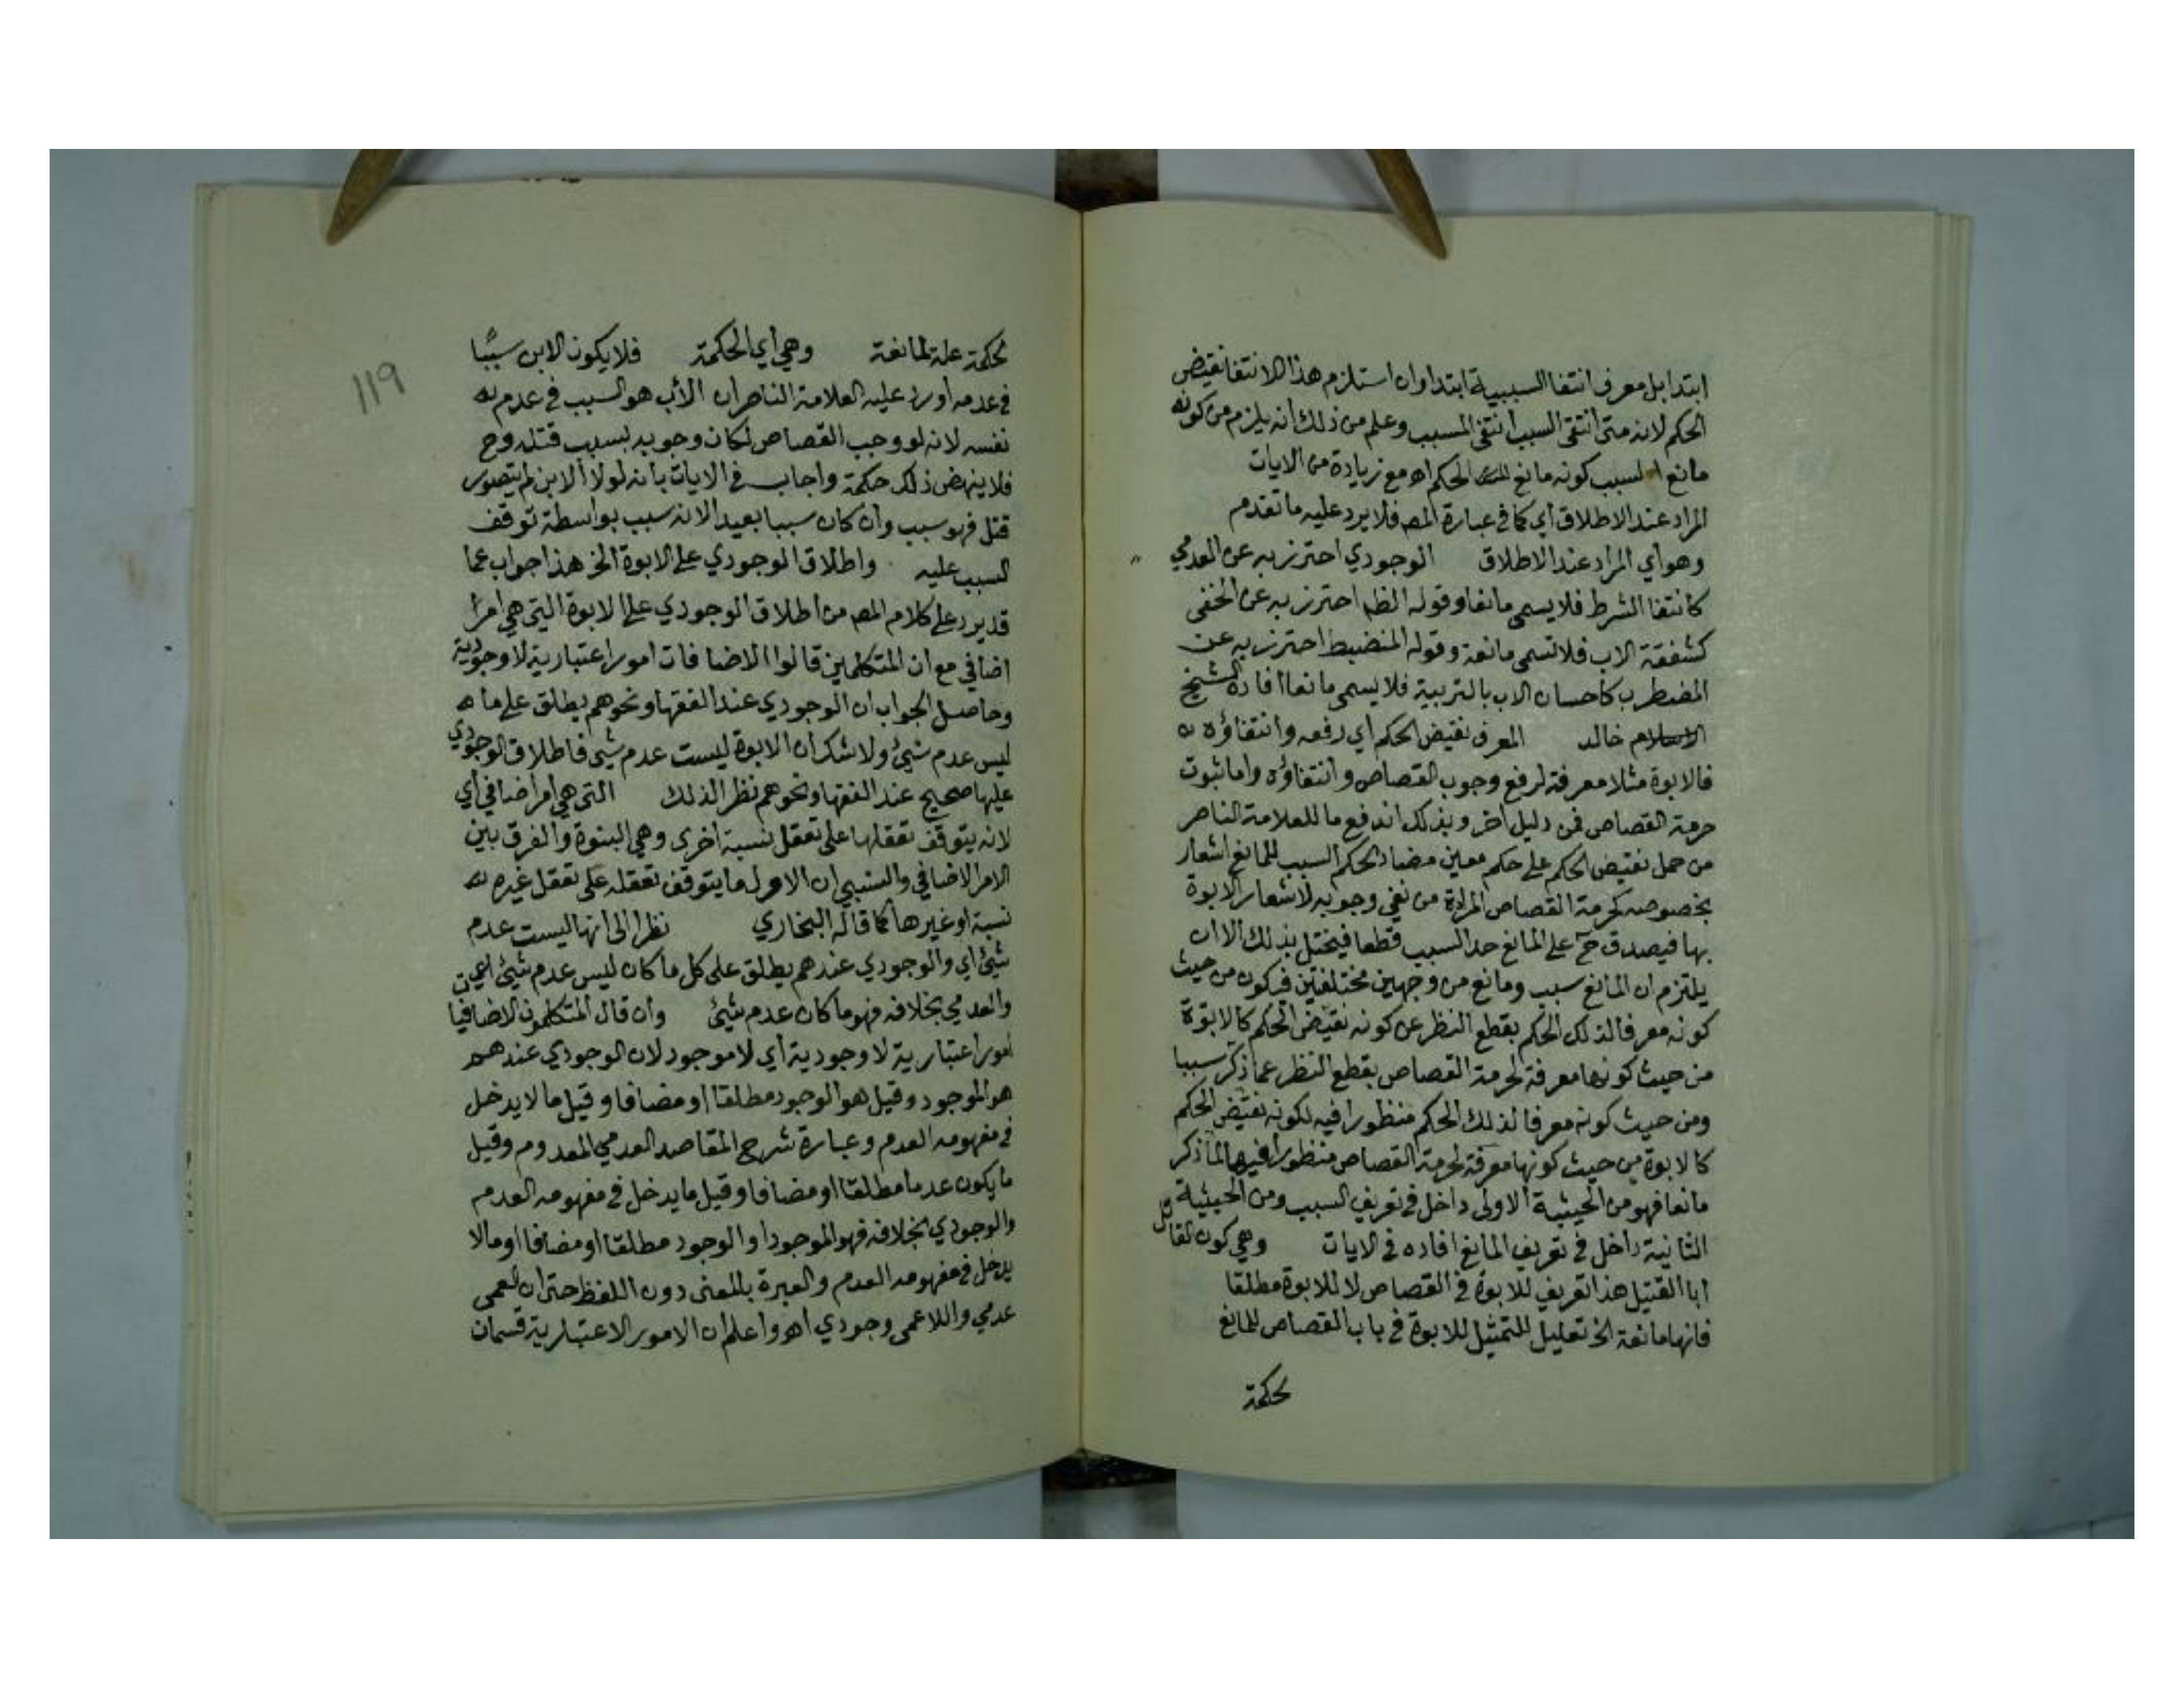 ابتدا بل معرف انتفا السببية ابتدا وان استلزم هذا الانتفا نقيض
الحكم لانه متى انتفى السبب انتفى المسبب وعلم من ذلك انه يلزم من كونه
مانع السبب كونه مانع الحكم اه مع زيادة من الايات
المراد عند الاطلاق أي كما في عبارة المص فلا يرد عليه ما تقدم
وهو أي المراد عند الاطلاق الوجودي احترز به عن العدمي
كانتفا الشرط فلا يسمى مانعا وقوله الظ احترز به عن الخفى
كشفقة الاب فلا تسمى مانعة وقوله المنضبط احترز به عن
المضطرب كاحسان الاب بالتربية فلا يسمى مانعا افاده الشيخ
خالد المعرف نقيض الحكم اي رفعه وانتفاؤه
فالابوة مثلا معرفة لرفع وجوب القصاص وانتفاؤه واما ثبوت
حرمة القصاص فمن دليل اخر وبذلك اندفع ما للعلامة الناصر
من حمل نقيض الحكم على حكم معين مضاد لحكم السبب للمانع اشعار
بخصوصه كحرمة القصاص المرادة من نفي وجوبه لاشعار الابوة
بها فيصدق ح على المانع حد السبب قطعا فيختل بذلك الا ان
يلتزم ان المانع سبب ومانع من وجهين مختلفين فيكون من حيث
كونه معرفا لذلك الحكم بقطع النظر عن كونه نقيض الحكم كالابوة
من حيث كونها معرفة لحرمة القصاص بقطع النظر عما ذكر سببا
ومن حيث كونه معرفا لذلك الحكم منظورا فيه لكونه نقيض الحكم
كالابوة من حيث كونها معرفة لحرمة القصاص منظورا فيها لما ذكر
مانعا فهو من الحيثية الاولى داخل في تعريف السبب ومن الحيثية
الثانية داخل في تعريف المانع افاده في الايات وهي كون القاتل
ابا القتيل هذا تعريف للابوة في القصاص لا للابوة مطلقا
فانها مانعة الخ تعليل للتمثيل للابوة في باب القصاص للمانع
لحكمة
١١٩
لحكمة علة لمانعة وهي أي الحكمة فلا يكون الابن سببا
في عدمه أورد عليه العلامة الناصر ان الأب هو السبب في عدم
نفسه لانه لو وجب القصاص لكان وجوبه بسبب قتله وح
فلا ينهض ذلك حكمة واجاب في الايات بانه لولا الابن لم يتصور
قتل فهو سبب وان كان سببا بعيدا لانه سبب بواسطة توقف
السبب عليه واطلاق الوجودي على الابوة الخ هذا جواب عما
قد يرد على كلام المص من اطلاق الوجودي على الابوة التي هي امر
اضافي مع ان المتكلمين قالوا الاضافات امور اعتبارية لا وجودية
وحاصل الجواب ان الوجودي عند الفقها ونحوهم يطلق على ما
ليس عدم شيئ ولا شك ان الابوة ليست عدم شيئ فاطلاق الوجودي
عليها صحيح عند الفقها ونحوهم نظرا لذلك التي هي امر اضافي أي
لانه يتوقف تعقلها على تعقل نسبة اخرى وهي البنوة والفرق بين
الامر الاضافي والنسبي ان الاول ما يتوقف تعقله على تعقل غيره
نسبة او غيرها كما قاله البخاري نظرا الى انها ليست عدم
شيئ اي والوجودي عندهم يطلق على كل ما كان ليس عدم شيئ
والعدمي بخلافه فهو ما كان عدم شيئ وان قال المتكلمون الاضافيا
امور اعتبارية لا وجودية أي لا موجود لان الوجودي عندهم
هو الموجود وقيل هو الوجود مطلقا او مضافا وقيل ما لا يدخل
في مفهومه العدم وعبارة شرح المقاصد العدمي المعدوم وقيل
ما يكون عدما مطلقا او مضافا وقيل ما يدخل في مفهومه العدم
والوجودي بخلافه فهو الموجود او الوجود مطلقا او مضافا او ما لا
يدخل في مفهومه العدم والعبرة بالمعنى دون اللفظ حتى ان العمى
عدمي واللاعمى وجودي اه واعلم ان الامور الاعتبارية قسمان